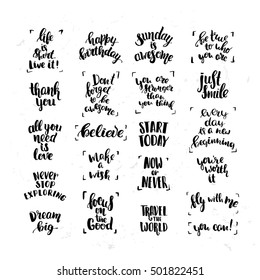 life
is
short
live it!
happy
birthday
Sunday
is
awesome
be true
to who
you are
thank
you
Don't
forget
to be
awesome
you are
stronger
than
you think
just
smile
all you
need
is
love
believe
START
TODAY
every
day
is a new
beginning
NEVER
STOP
EXPLORING
make
a
wish
NOW
OR
NEVER
you're
worth
it
Dream
big
focus
on
the
Good
TRAVEL
THE
WORLD
fly with me
you can!
shutterstock
501822451